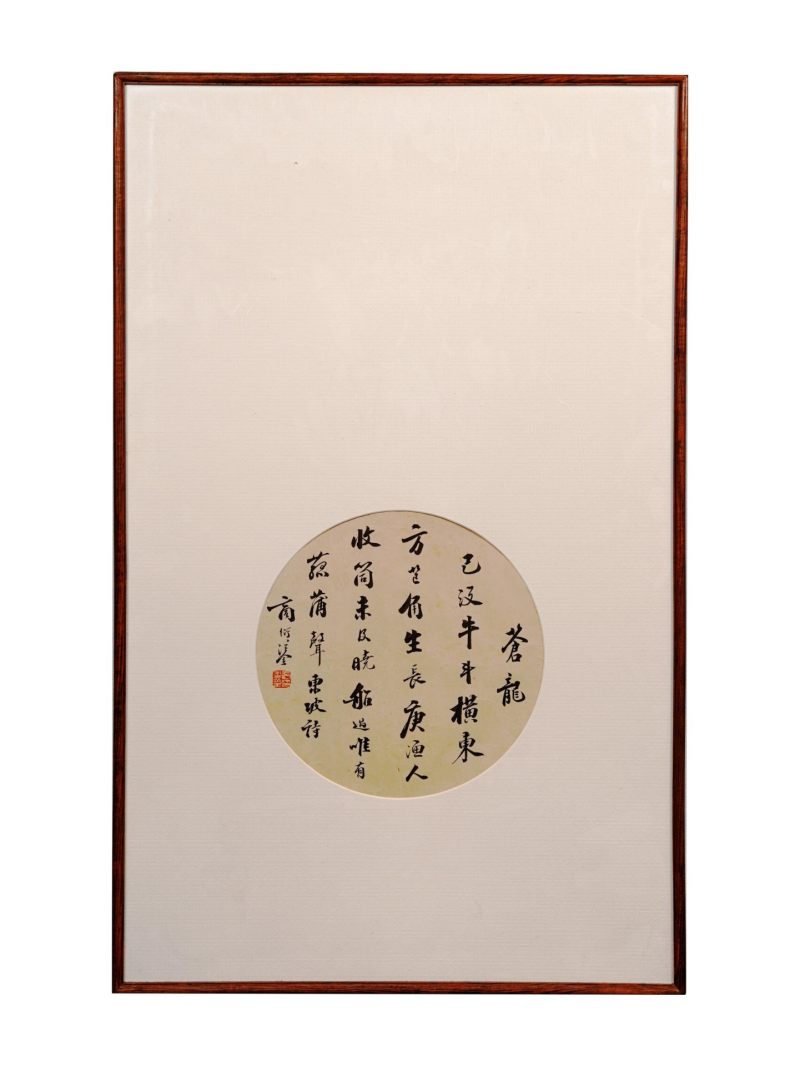 蒼龍
已没牛斗横東
方芒角生長庚漁人
收筒未及曉船過唯有
菰蒲聲東坡詩
商衍鎏